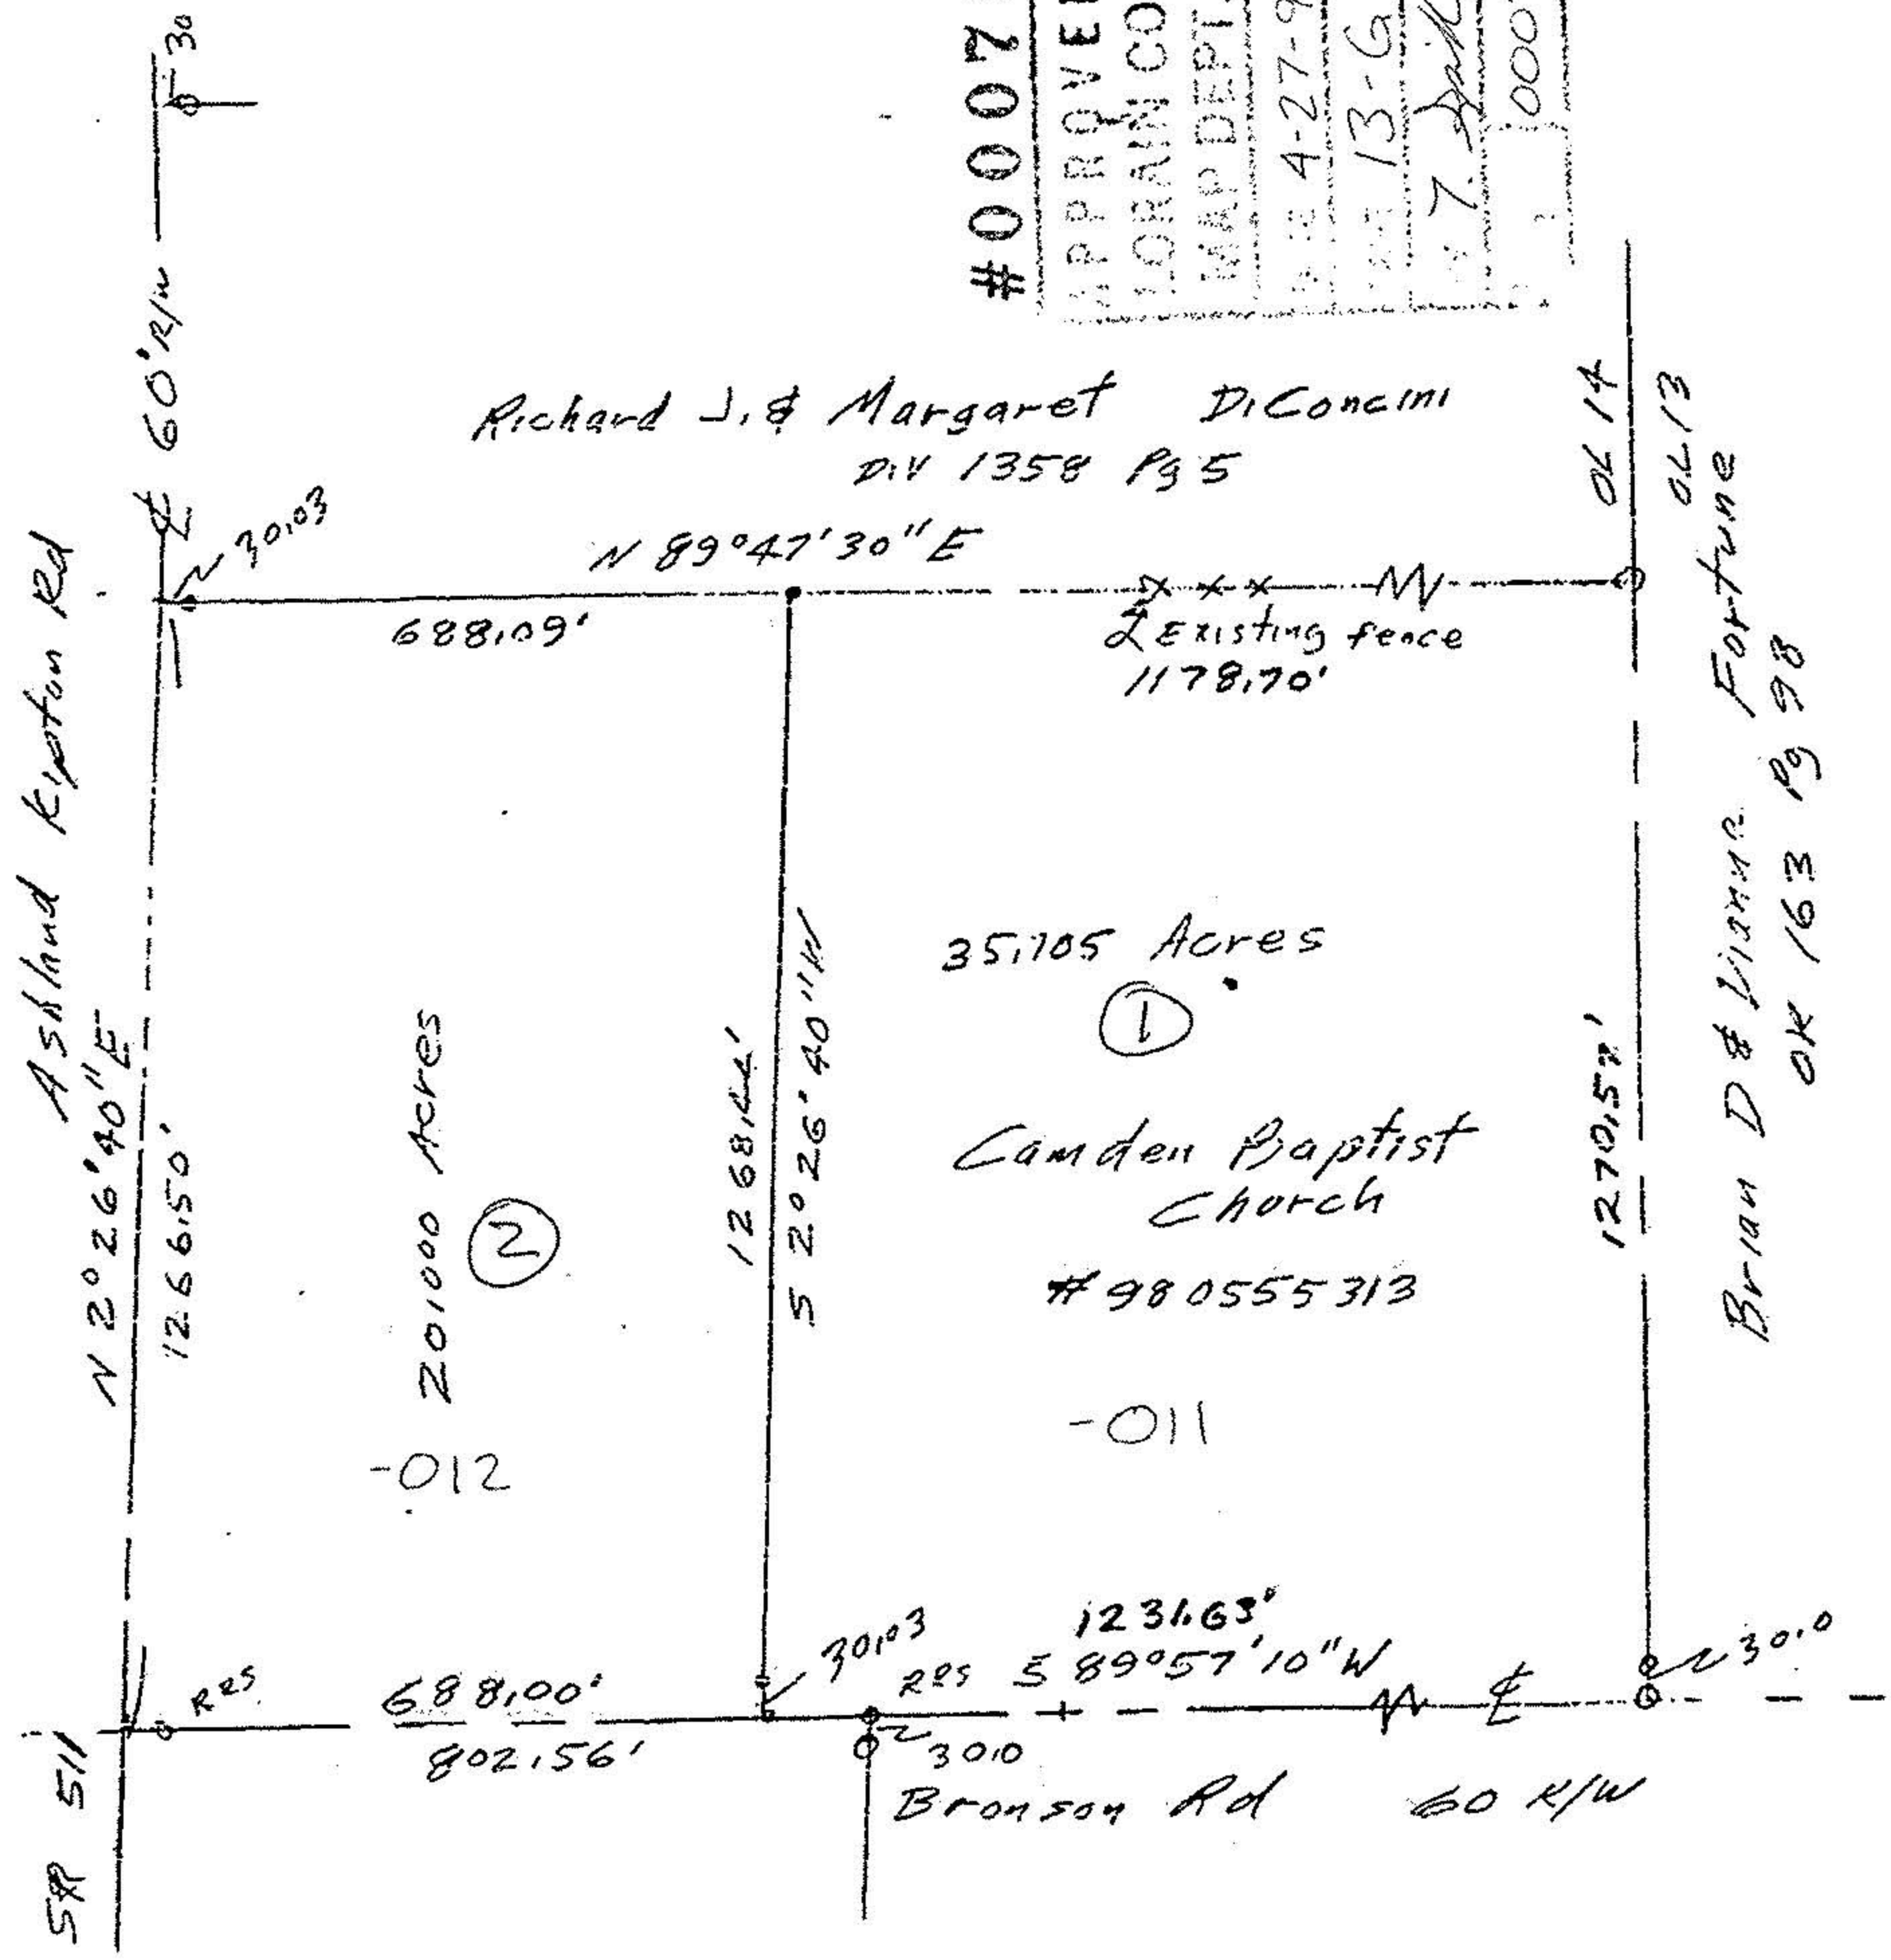 30
#0007
APPROVE
LORAIN CO
MAP DEPT.
4-27-9
13-G
7.
000
60' R/W
Richard J. & Margaret DiConcini
D.V 1358 Pg 5
OL 14
OL 13
30.03
N 89°47'30" E
688.09'
Existing fence
1178.70'
Ashland Kipton Rd
N 2°26'40" E
1266.50'
20.000 Acres
2
-012
1268.44'
S 2°26'40" W
35.705 Acres
1
Camden Baptist
Church
#980555313
-011
1270.57'
Brian D & Fortune
OR 163 Pg 98
1231.63'
S 89°57'10" W
30.03
30.0
RRS
688.00'
RRS
802.56'
30.0
Bronson Rd 60 R/W
SR 511